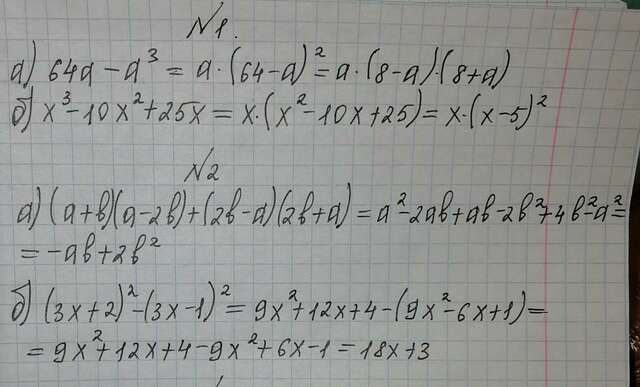 №1.
а) 64a - a³ = a·(64-a)² = a·(8-a)·(8+a)
б) x³-10x²+25x = x·(x²-10x+25) = x·(x-5)²
№2
а) (a+b)(a-2b)+(2b-a)(2b+a) = a²-2ab+ab-2b²+4b²-a² =
= -ab+2b²
б) (3x+2)²-(3x-1)² = 9x²+12x+4-(9x²-6x+1) =
= 9x²+12x+4-9x²+6x-1 = 18x+3